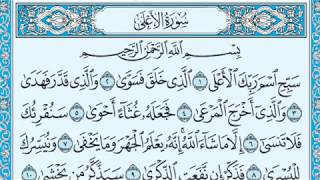 سُورَةُ الأَعْلَى
بِسْمِ اللَّهِ الرَّحْمَنِ الرَّحِيمِ
سَبِّحِ اسْمَ رَبِّكَ الأَعْلَى ١ الَّذِي خَلَقَ فَسَوَّى ٢ وَالَّذِي قَدَّرَ فَهَدَى
٣ وَالَّذِي أَخْرَجَ الْمَرْعَى ٤ فَجَعَلَهُ غُثَاءً أَحْوَى ٥ سَنُقْرِئُكَ
فَلَا تَنسَى ٦ إِلَّا مَا شَاءَ اللَّهُ إِنَّهُ يَعْلَمُ الْجَهْرَ وَمَا يَخْفَى ٧ وَنُيَسِّرُكَ
لِلْيُسْرَى ٨ فَذَكِّرْ إِن نَّفَعَتِ الذِّكْرَى ٩ سَيَذَّكَّرُ مَن يَخْشَى ١٠